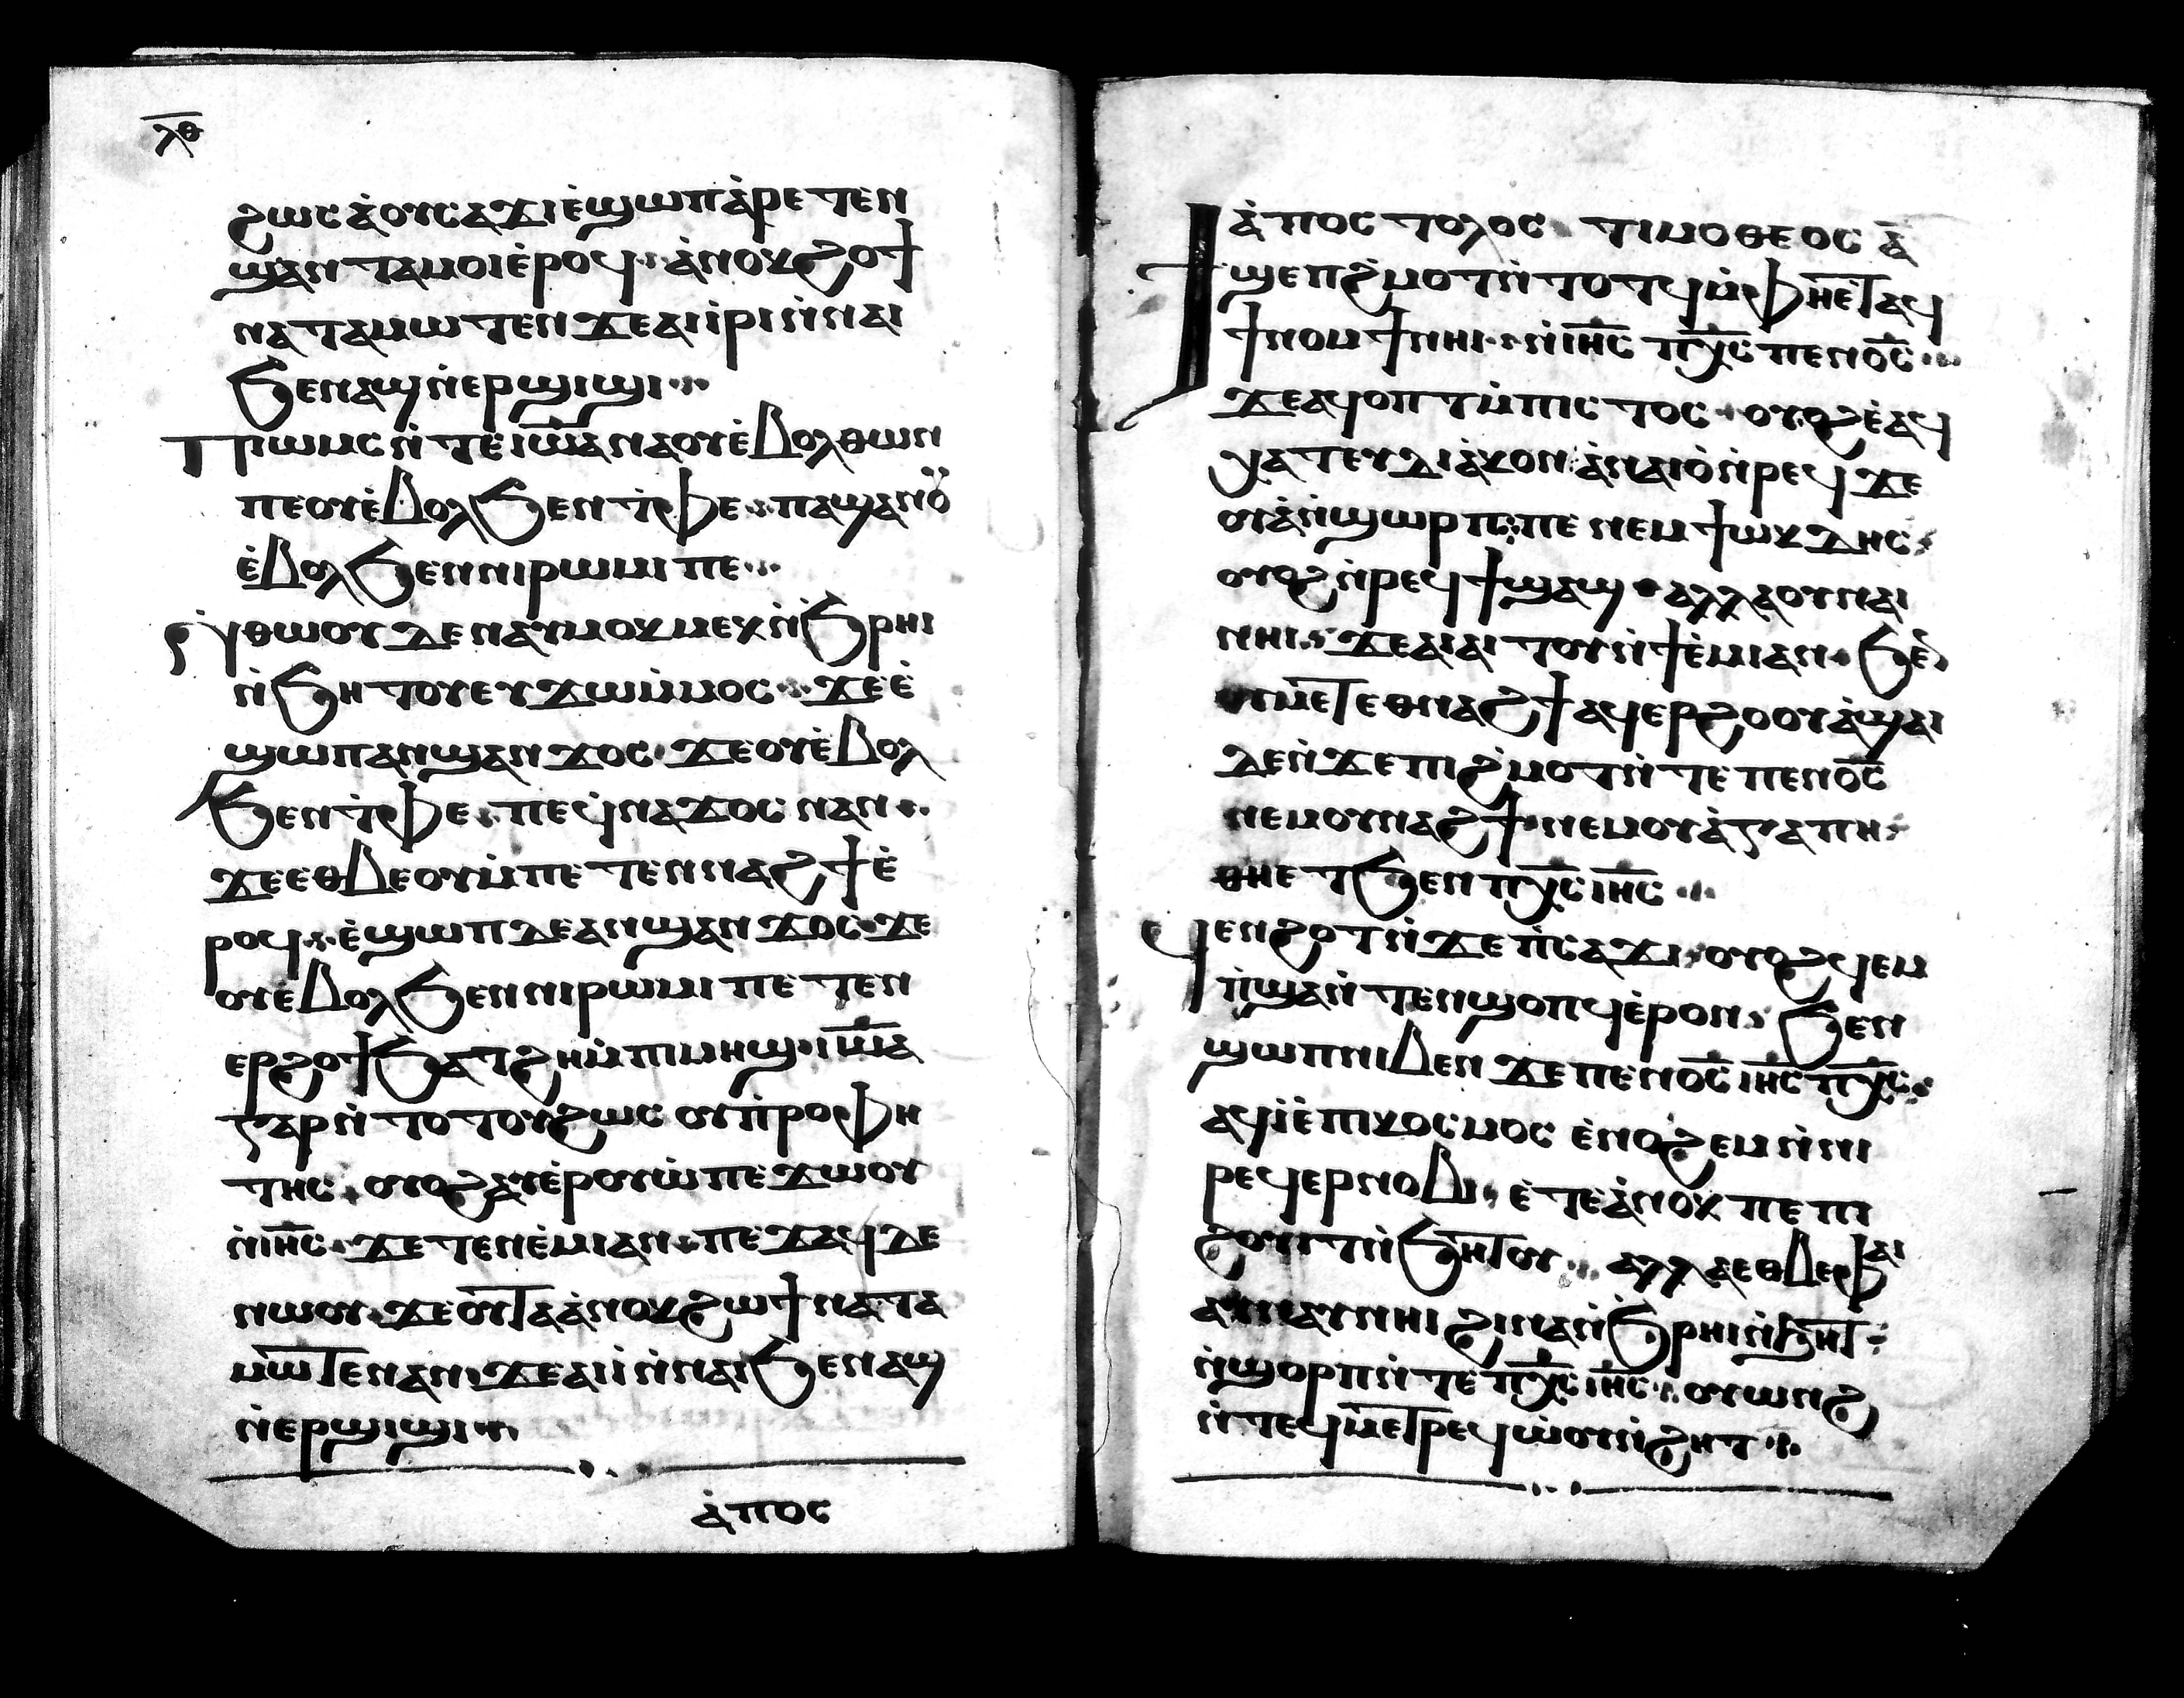 ⲗ̅ⲑ̅
ϩⲱⲥ ⲁ̀ⲟⲩⲥⲁϫⲓ ⲉ̀ϣⲱⲡ ⲁ̀ⲣⲉⲧⲉⲛ
ϣⲁⲛⲧⲁⲙⲟⲓ ⲉ̀ⲣⲟϥ ⁘ ⲁ̀ⲛⲟⲕ ϩⲱϯ
ⲛⲁⲧⲁⲙⲱⲧⲉⲛ ϫⲉ ⲁⲓⲓ̀ⲣⲓ ⲛ̀ⲛⲁⲓ
ϧⲉⲛ ⲁϣ ⲛ̀ⲉⲣϣⲓϣⲓ ⁘
ⲡⲣⲱⲙⲥ ⲛ̀ⲧⲉ ⲓⲱ̅ⲁ ⲛⲁ ⲟⲩⲉ̀ⲃⲟⲗ ⲑⲱⲛ
ⲡⲉ ⲟⲩⲉ̀ⲃⲟⲗ ϧⲉⲛ ⲧ̀ⲫⲉ ⁘ ⲡⲁϣⲁⲛ ⲟ̈
ⲉ̀ⲃⲟⲗ ϧⲉⲛ ⲛⲓⲣⲱⲙⲓ ⲡⲉ ⁘
ⲛ̀ⲑⲱⲟⲩ ⲇⲉ ⲛⲁⲩⲙⲟⲕⲙⲉⲕ ⲛ̀ϧⲣⲏⲓ
ⲛ̀ϧⲏⲧⲟⲩ ⲉⲩϫⲱ ⲙ̀ⲙⲟⲥ ⁘ ϫⲉ ⲉ̀
ϣⲱⲡ ⲁⲛϣⲁⲛϫⲟⲥ ϫⲉ ⲟⲩⲉ̀ⲃⲟⲗ
ϧⲉⲛ ⲧ̀ⲫⲉ ⲡⲉ ϥⲛⲁϫⲟⲥ ⲛⲁⲛ ⁘
ϫⲉ ⲉⲑⲃⲉ ⲟⲩ ⲙ̀ⲡⲉⲧⲉⲛⲛⲁϩϯ ⲉ̀
ⲣⲟϥ ⁘ ⲉ̀ϣⲱⲡ ⲇⲉ ⲁⲛϣⲁⲛϫⲟⲥ ϫⲉ
ⲟⲩⲉ̀ⲃⲟⲗ ϧⲉⲛ ⲛⲓⲣⲱⲙⲓ ⲡⲉ ⲧⲉⲛ
ⲉⲣϩⲟϯ ϧⲁⲧϩⲏ ⲙ̀ⲡⲓⲙⲏϣ ⲓⲱ̅ⲁ
ⲅⲁⲣ ⲛ̀ⲧⲟⲧⲟⲩ ϩⲱⲥ ⲟⲩⲡ̀ⲣⲟⲫⲏ
ⲧⲏⲥ ⲟⲩⲟϩ ⲁⲩⲉ̀ⲣⲟⲩⲱ̀ ⲡⲉϫⲱⲟⲩ
ⲛ̀ⲓⲏ̅ⲥ̅ ϫⲉ ⲧⲉⲛⲉ̀ⲙⲓ ⲁⲛ ⲡⲉϫⲁϥ ⲇⲉ
ⲛⲱⲟⲩ ϫⲉ ⲟⲩⲧⲁ ⲁ̀ⲛⲟⲕ ϩⲱ ϯⲛⲁⲧⲁ
ⲙⲱ̅ⲧⲉⲛ ⲁⲛ ϫⲉ ⲁⲓⲓ̀ ⲛ̀ⲛⲁⲓ ϧⲉⲛ ⲁϣ
ⲛ̀ⲉⲣϣⲓϣⲓ ⁘
ⲁ̀ⲡⲟⲥ
ⲁ̀ⲡⲟⲥⲧⲟⲗⲟⲥ ⲧⲓⲙⲟⲑⲉⲟⲥ ⲁ̅
ϯϣⲉⲡϩ̀ⲙⲟⲧ ⲛ̀ⲧⲟⲧϥ ⲙ̀ⲫⲏⲉ̀ⲧⲁϥ
ϯⲛⲟⲙϯ ⲛⲏⲓ ⁘ ⲛ̀ⲓⲏ̅ⲥ̅ ⲡⲭ̅ⲥ̅ ⲡⲉⲛⲟ̅ⲥ̅ ⁘
ϫⲉ ⲁϥⲟⲡⲧ ⲙ̀ⲡⲓⲥⲧⲟⲥ ⲟⲩⲟϩ ⲉ̀ⲁϥ
ⲭⲁⲧ ⲉⲩⲇⲓⲁ̀ⲕⲟⲛ ⲁ̀ⲛⲁⲓⲟ̀ ⲛ̀ⲣⲉϥϫⲉ
ⲟⲩⲁ̀ ⲛ̀ϣⲱⲣⲡ ⲡⲉ ⲛⲉⲙ ϯⲱⲕⲇⲏⲥ
ⲟⲩⲟϩ ⲛ̀ⲣⲉϥϯϣⲱϣ ⲁⲗⲗⲁ ⲟⲩⲛⲁⲓ
ⲛⲏⲓ ϫⲉ ⲁⲓⲁⲓⲧⲟⲩ ⲛ̀ϯⲉ̀ⲙⲓ ⲁⲛ ϧⲉ̅
ⲟⲩⲙⲉⲧⲉⲑⲛⲁϩϯ ⲁϥⲉⲣϩⲟⲩⲟ̀ ⲁϣⲁⲓ
ⲇⲉ ⲛ̀ϫⲉ ⲡⲓϩ̀ⲙⲟⲧ ⲛ̀ⲧⲉ ⲡⲉⲛⲟ̅ⲥ̅
ⲛⲉⲙ ⲟⲩⲛⲁϩϯ ⲛⲉⲙ ⲟⲩⲁ̀ⲅⲁⲡⲏ
ⲑⲏⲉⲧϧⲉⲛ ⲡⲭ̅ⲥ̅ ⲓⲏ̅ⲥ̅ ⁘
ϥⲉⲛϩⲟⲧ ⲛ̀ϫⲉ ⲡ̀ⲥⲁϫⲓ ⲟⲩⲟϩ ϥⲉⲙ
ⲡ̀ϣⲁ ⲛ̀ⲧⲉⲛϣⲟⲡϥ ⲉ̀ⲣⲟⲛ ϧⲉⲛ
ϣⲱⲡ ⲛⲓⲃⲉⲛ ϫⲉ ⲡⲉⲛⲟ̅ⲥ̅ ⲓⲏ̅ⲥ̅ ⲡⲭ̅ⲥ̅
ⲁϥⲓ̀ ⲉ̀ⲡⲓⲕⲟⲥⲙⲟⲥ ⲉ̀ⲛⲟϩⲉⲙ ⲛ̀ⲛⲓ
ⲣⲉϥⲉⲣⲛⲟⲃⲓ ⲉ̀ⲧⲉ ⲁ̀ⲛⲟⲕ ⲡⲉ ⲡⲓ
ϩⲟⲩⲓⲧ ⲛ̀ϧⲏⲧⲟⲩ ⁘ ⲁⲗⲗⲁ ⲉⲑⲃⲉ ⲫⲁⲓ
ⲁⲩⲛⲁⲩ ⲛⲏⲓ ϩⲓⲛⲁ ⲛ̀ϧⲣⲏⲓ ⲛ̀ϧⲏⲧ
ⲛ̀ϣⲟⲣⲡ ⲛ̀ⲧⲉ ⲡⲭ̅ⲥ̅ ⲓⲏ̅ⲥ̅ ⲟⲩⲱⲛϩ
ⲛ̀ⲧⲉϥⲙⲉⲧⲣⲉϥⲱ̀ⲟⲩⲛ̀ϩⲏⲧ ⁘